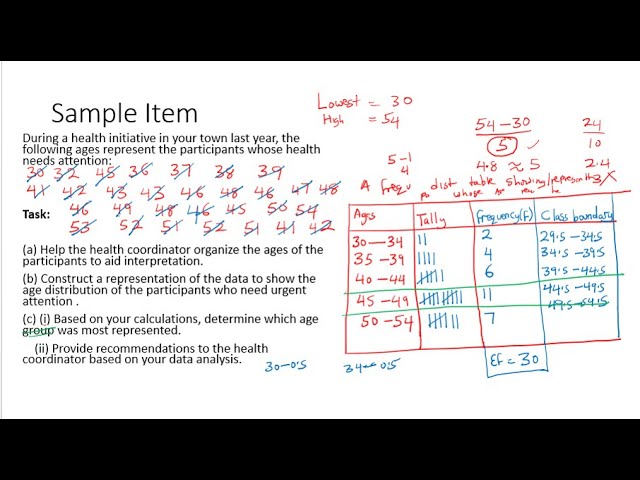 Sample Item
During a health initiative in your town last year, the
following ages represent the participants whose health
needs attention:
30 32 45 36 37 38 39
41 42 43 43 46 48 46 47 48
Task: 46 49 48 46 45 50 54
53 52 51 52 51 41 42
(a) Help the health coordinator organize the ages of the
participants to aid interpretation.
(b) Construct a representation of the data to show the
age distribution of the participants who need urgent
attention .
(c) (i) Based on your calculations, determine which age
group was most represented.
(ii) Provide recommendations to the health
coordinator based on your data analysis.
30-0.5 34-0.5
Lowest = 30
High = 54
54-30
5
4.8 ≈ 5
24
10
2.4
5-1
4
A frequ dist table showing/represent
whose
Ages Tally frequency(f) Class boundary
30-34 || 2 29.5-34.5
35-39 |||| 4 34.5-39.5
40-44 6 39.5-44.5
45-49 11 44.5-49.5
49.5-54.5
50-54 7
Ef = 30